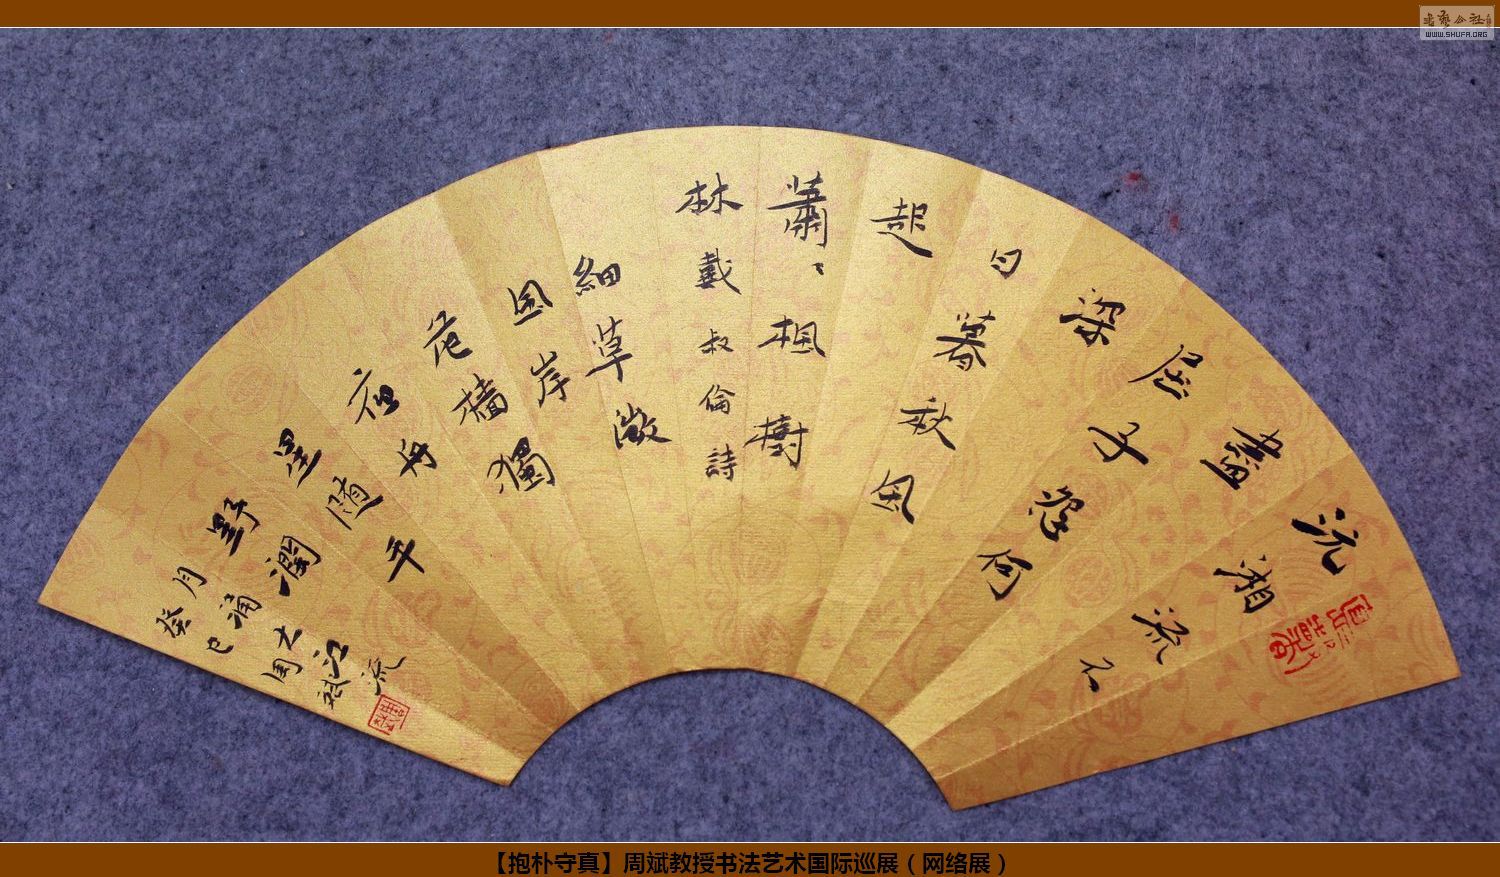 沅湘流不
盡
屈子怨何
深
日暮秋風
起
蕭〻楓樹
林 戴叔倫詩
細草微
風岸
危檣獨
夜舟
星隨平
野濶
月湧大江流
癸巳周斌
【抱朴守真】周斌教授书法艺术国际巡展（网络展）
WWW.SHUFA.ORG